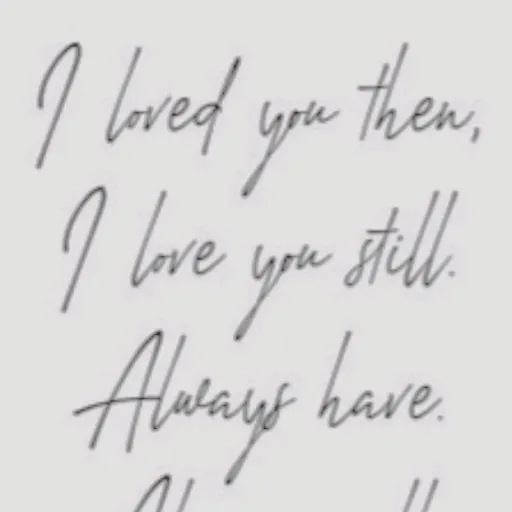 I loved you then,
I love you still.
Always have.